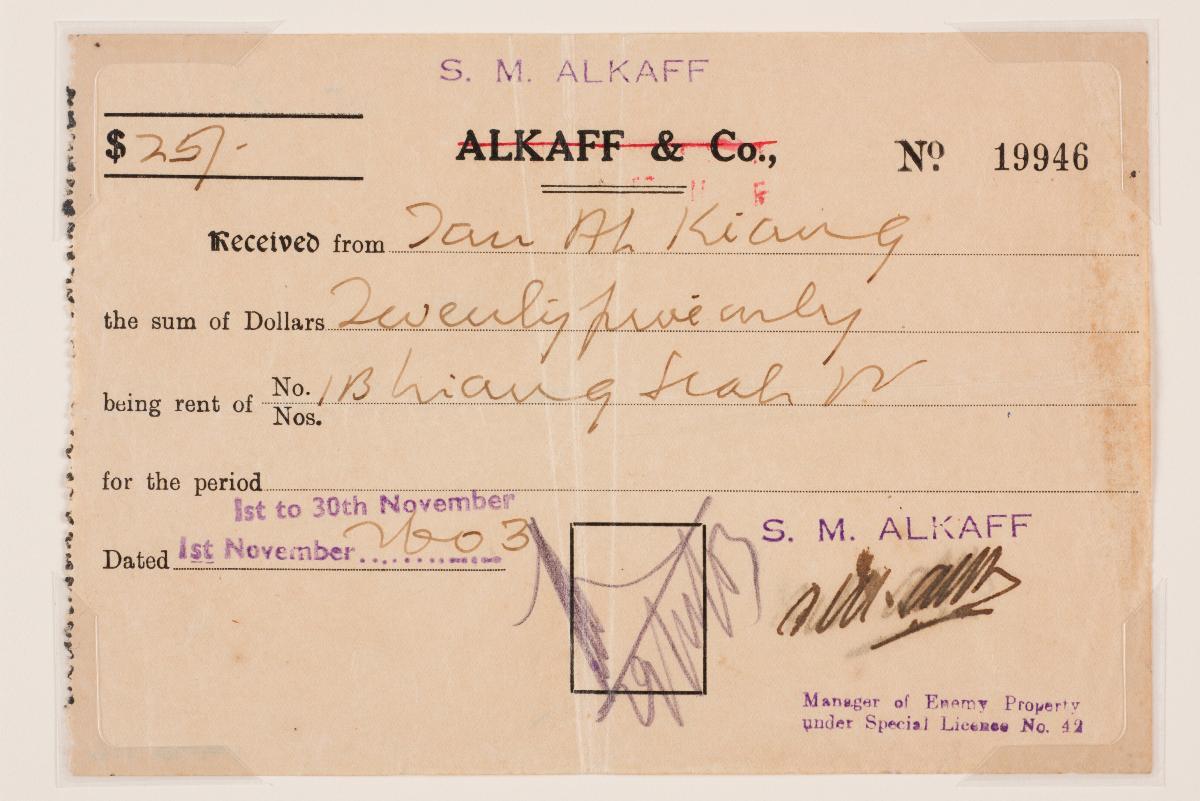 S. M. ALKAFF
$ 25/-
ALKAFF & Co.,
No 19946
Received from Tan Ah Kiang
the sum of Dollars Twenty five only
being rent of No. Nos. 1B Liang Seah
for the period
1st to 30th November
Dated 1st November 2603
S. M. ALKAFF
Manager of Enemy Property
under Special Licence No. 42